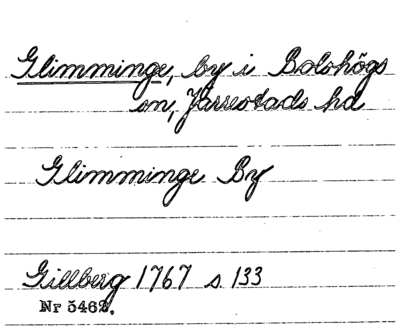 Glimminge, by i Bolshögs
sn, Järrestads hd
Glimminge By
Gillberg 1767 s. 133
Nr 5462.